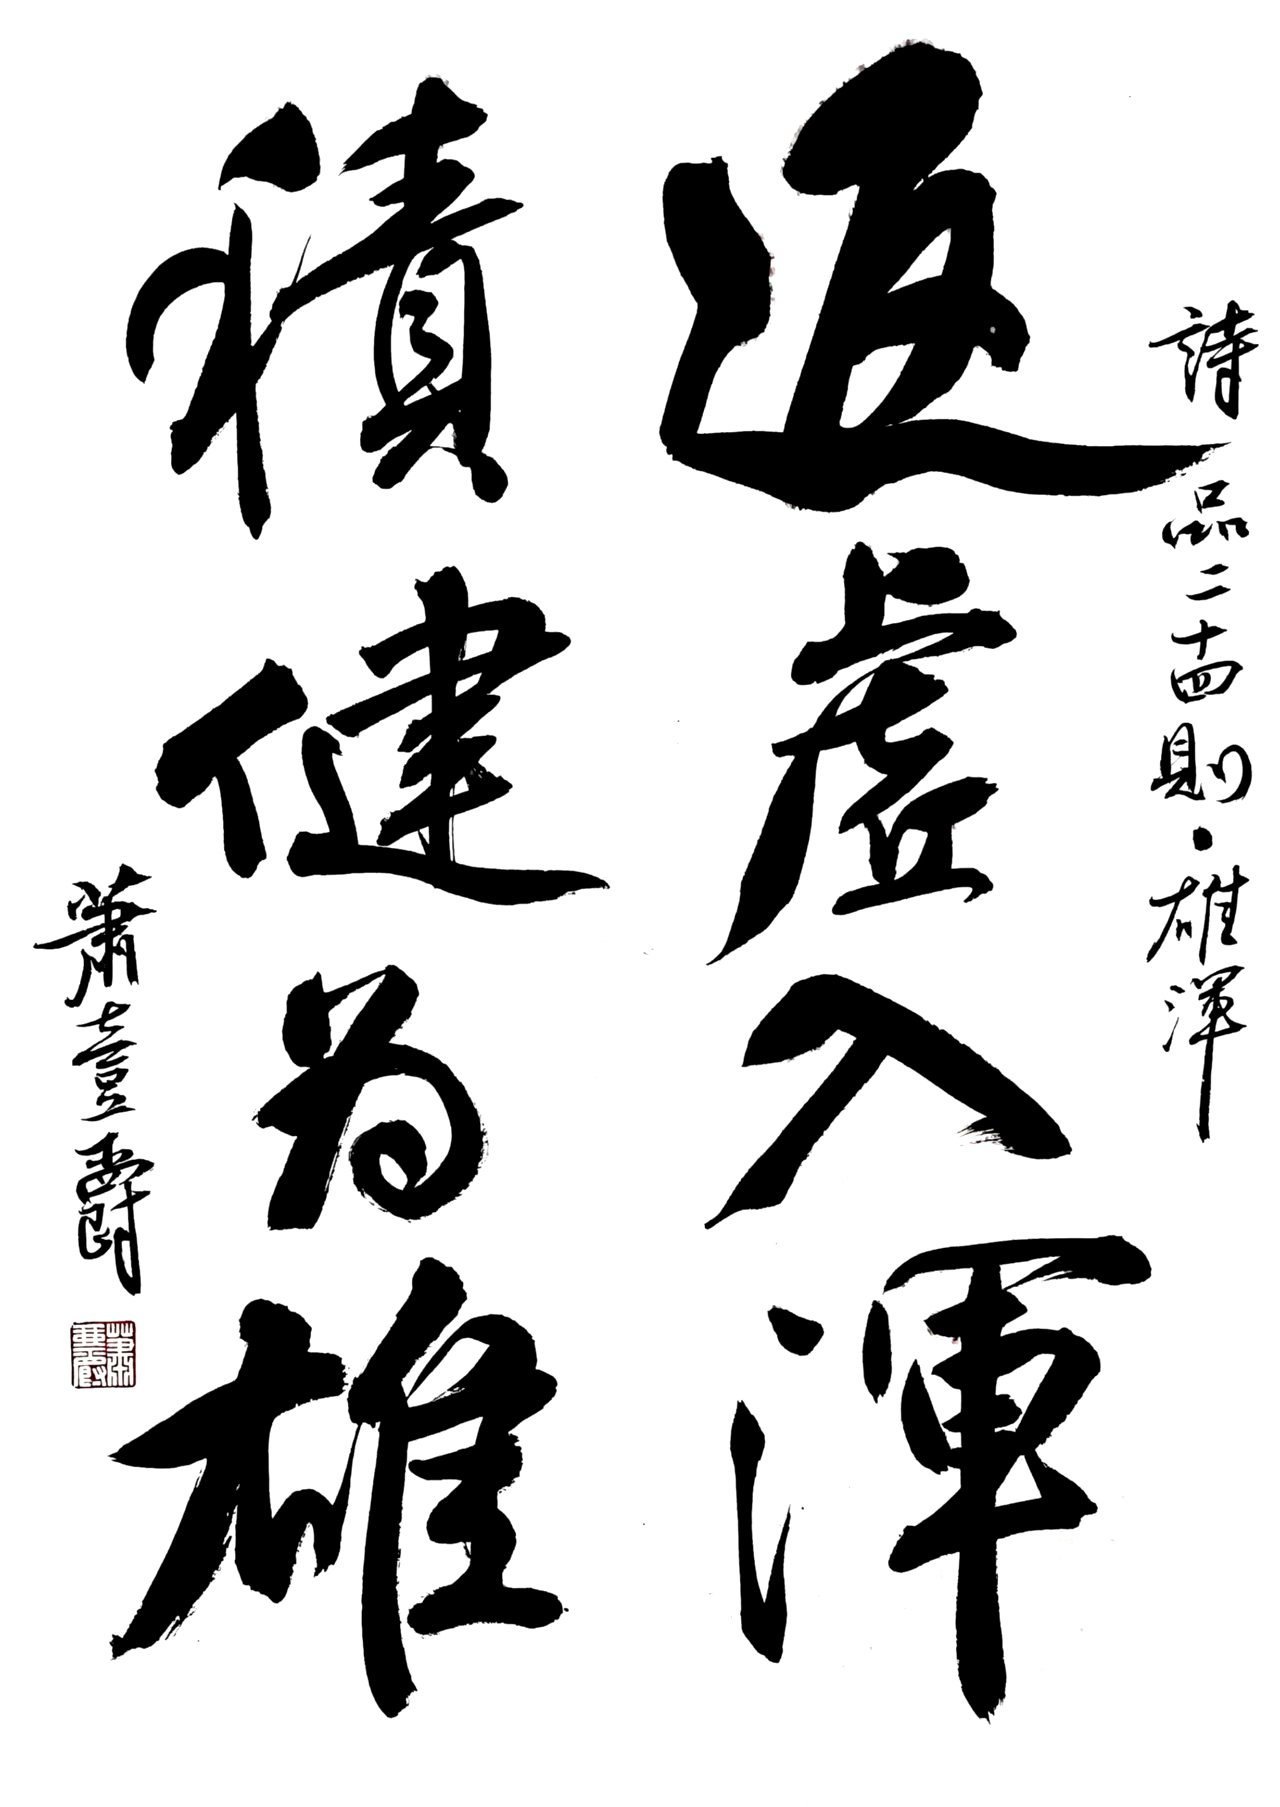 詩品二十四則·雄渾
返虛入渾
積健為雄
蕭壹爵